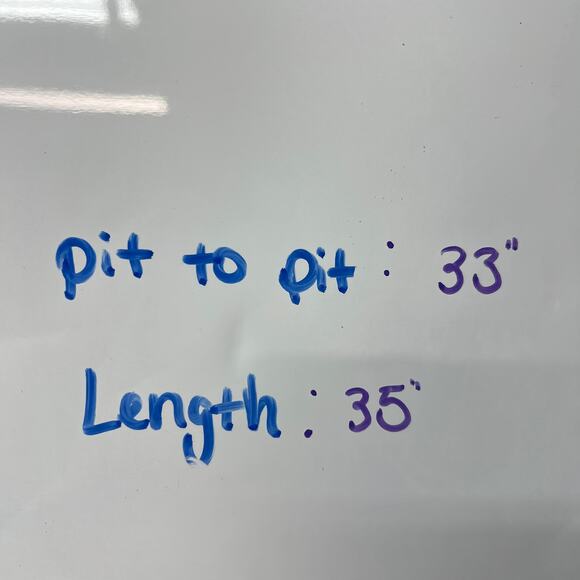 pit to pit : 33"
Length : 35"